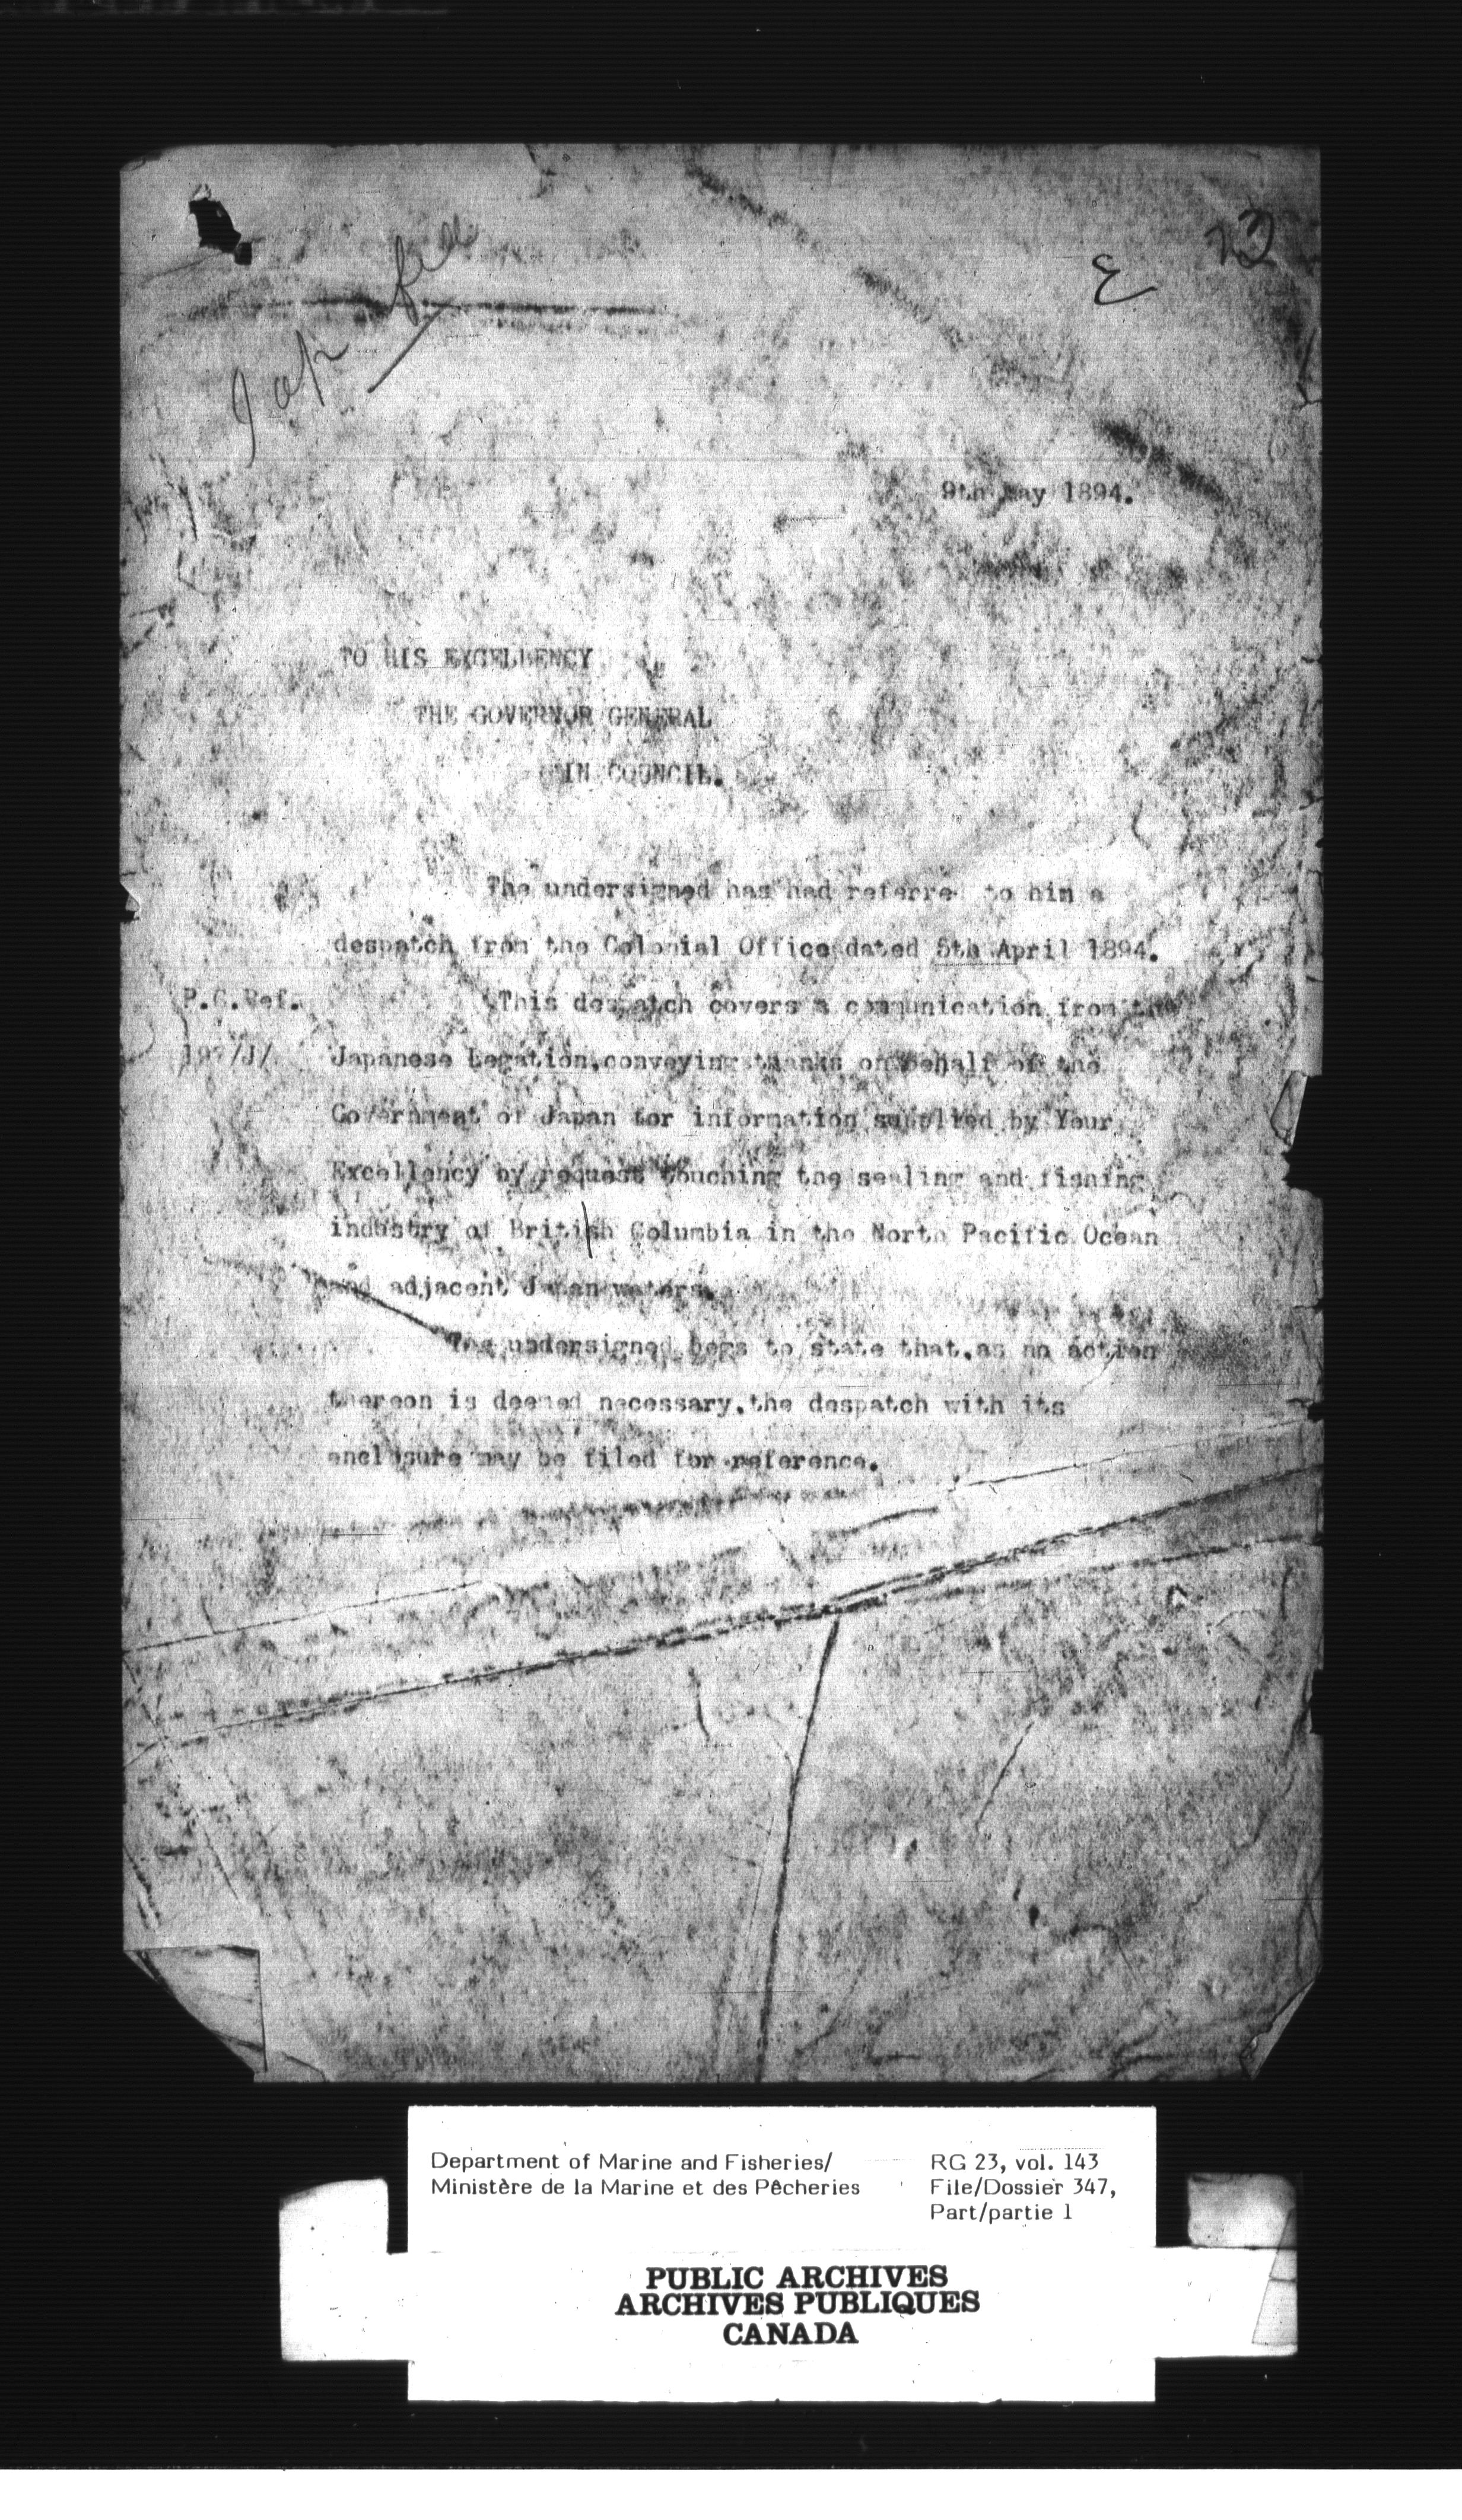 Jap file
E
9th May 1894.
TO HIS EXCELLENCY
THE GOVERNOR GENERAL
IN COUNCIL.
The undersigned has had referred to him a
despatch from the Colonial Office dated 5th April 1894.
P.C.Ref. This despatch covers a communication from the
J/ Japanese Legation, conveying thanks on behalf of the
Government of Japan for information supplied by Your
Excellency by request touching the sealing and fishing
industry of British Columbia in the North Pacific Ocean
and adjacent Japan waters.
The undersigned begs to state that, as no action
thereon is deemed necessary, the despatch with its
enclosure may be filed for reference.
Department of Marine and Fisheries/ RG 23, vol. 143
Ministère de la Marine et des Pêcheries File/Dossier 347,
Part/partie 1
PUBLIC ARCHIVES
ARCHIVES PUBLIQUES
CANADA